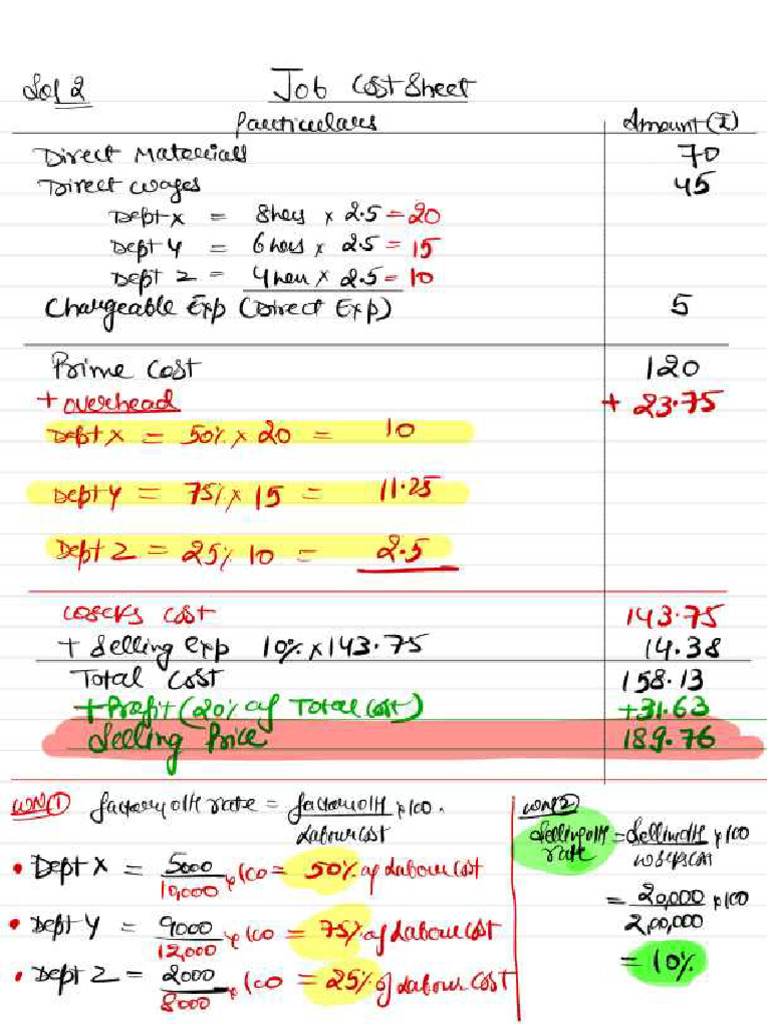 Sol 2 Job Cost Sheet
Particulars Amount (₹)
Direct Materials 70
Direct wages 45
Dept X = 8 hrs × 2.5 = 20
Dept Y = 6 hours × 2.5 = 15
Dept Z = 4 hour × 2.5 = 10
Chargeable Exp (Direct Exp) 5
Prime Cost 120
+ overhead + 23.75
Dept X = 50% × 20 = 10
Dept Y = 75% × 15 = 11.25
Dept Z = 25% 10 = 2.5
works cost 143.75
+ Selling exp 10% × 143.75 14.38
Total Cost 158.13
+ Profit (20% of Total Cost) +31.63
Selling Price 189.76
WN(1) factory O/H rate = factory O/H × 100
Labour cost
• Dept X = 5000 × 100 = 50% of Labour cost
10,000
• Dept Y = 9000 × 100 = 75% of Labour cost
12,000
• Dept Z = 2000 × 100 = 25% of Labour cost
8000
WN(2)
Selling O/H rate = Selling O/H × 100
works cost
= 20,000 × 100
2,00,000
= 10%